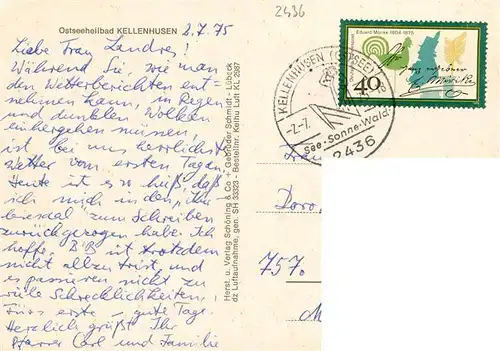 Ostseeheilbad KELLENHUSEN
2.7.75
2436
Liebe Frau Landre!
Während Sie, wie man
den Wetterberichten ent=
nehmen kann, in Regen
und dunklen Wolken
einhergehen müssen,
ist bei uns herrlichstes
Wetter vom ersten Tag an.
Heute ist es so heiß, daß
ich mich in den
lesesaal" zum Schreiben
zurückgezogen habe. Ich
hoffe, B'B ist trotzdem
nicht allzu trist, und
es passieren nicht zu
viele Schrecklichkeiten.
Fürs erste - gute Tage.
Herzlich grüßt Ihr
Pfarrer Carl und Familie
Herst. u. Verlag Schöning & Co + Gebrüder Schmidt, Lübeck
dz Luftaufnahme, gen. SH 33323 - Bestellnr. Kelhu Luft KL 2987
Eduard Mörike 1804-1875
Deutsche Bundespost
40
KELLENHUSEN (OSTSEE)
-2.-7.
See-Sonne-Wald
2436
Frau
Doro
757.
M